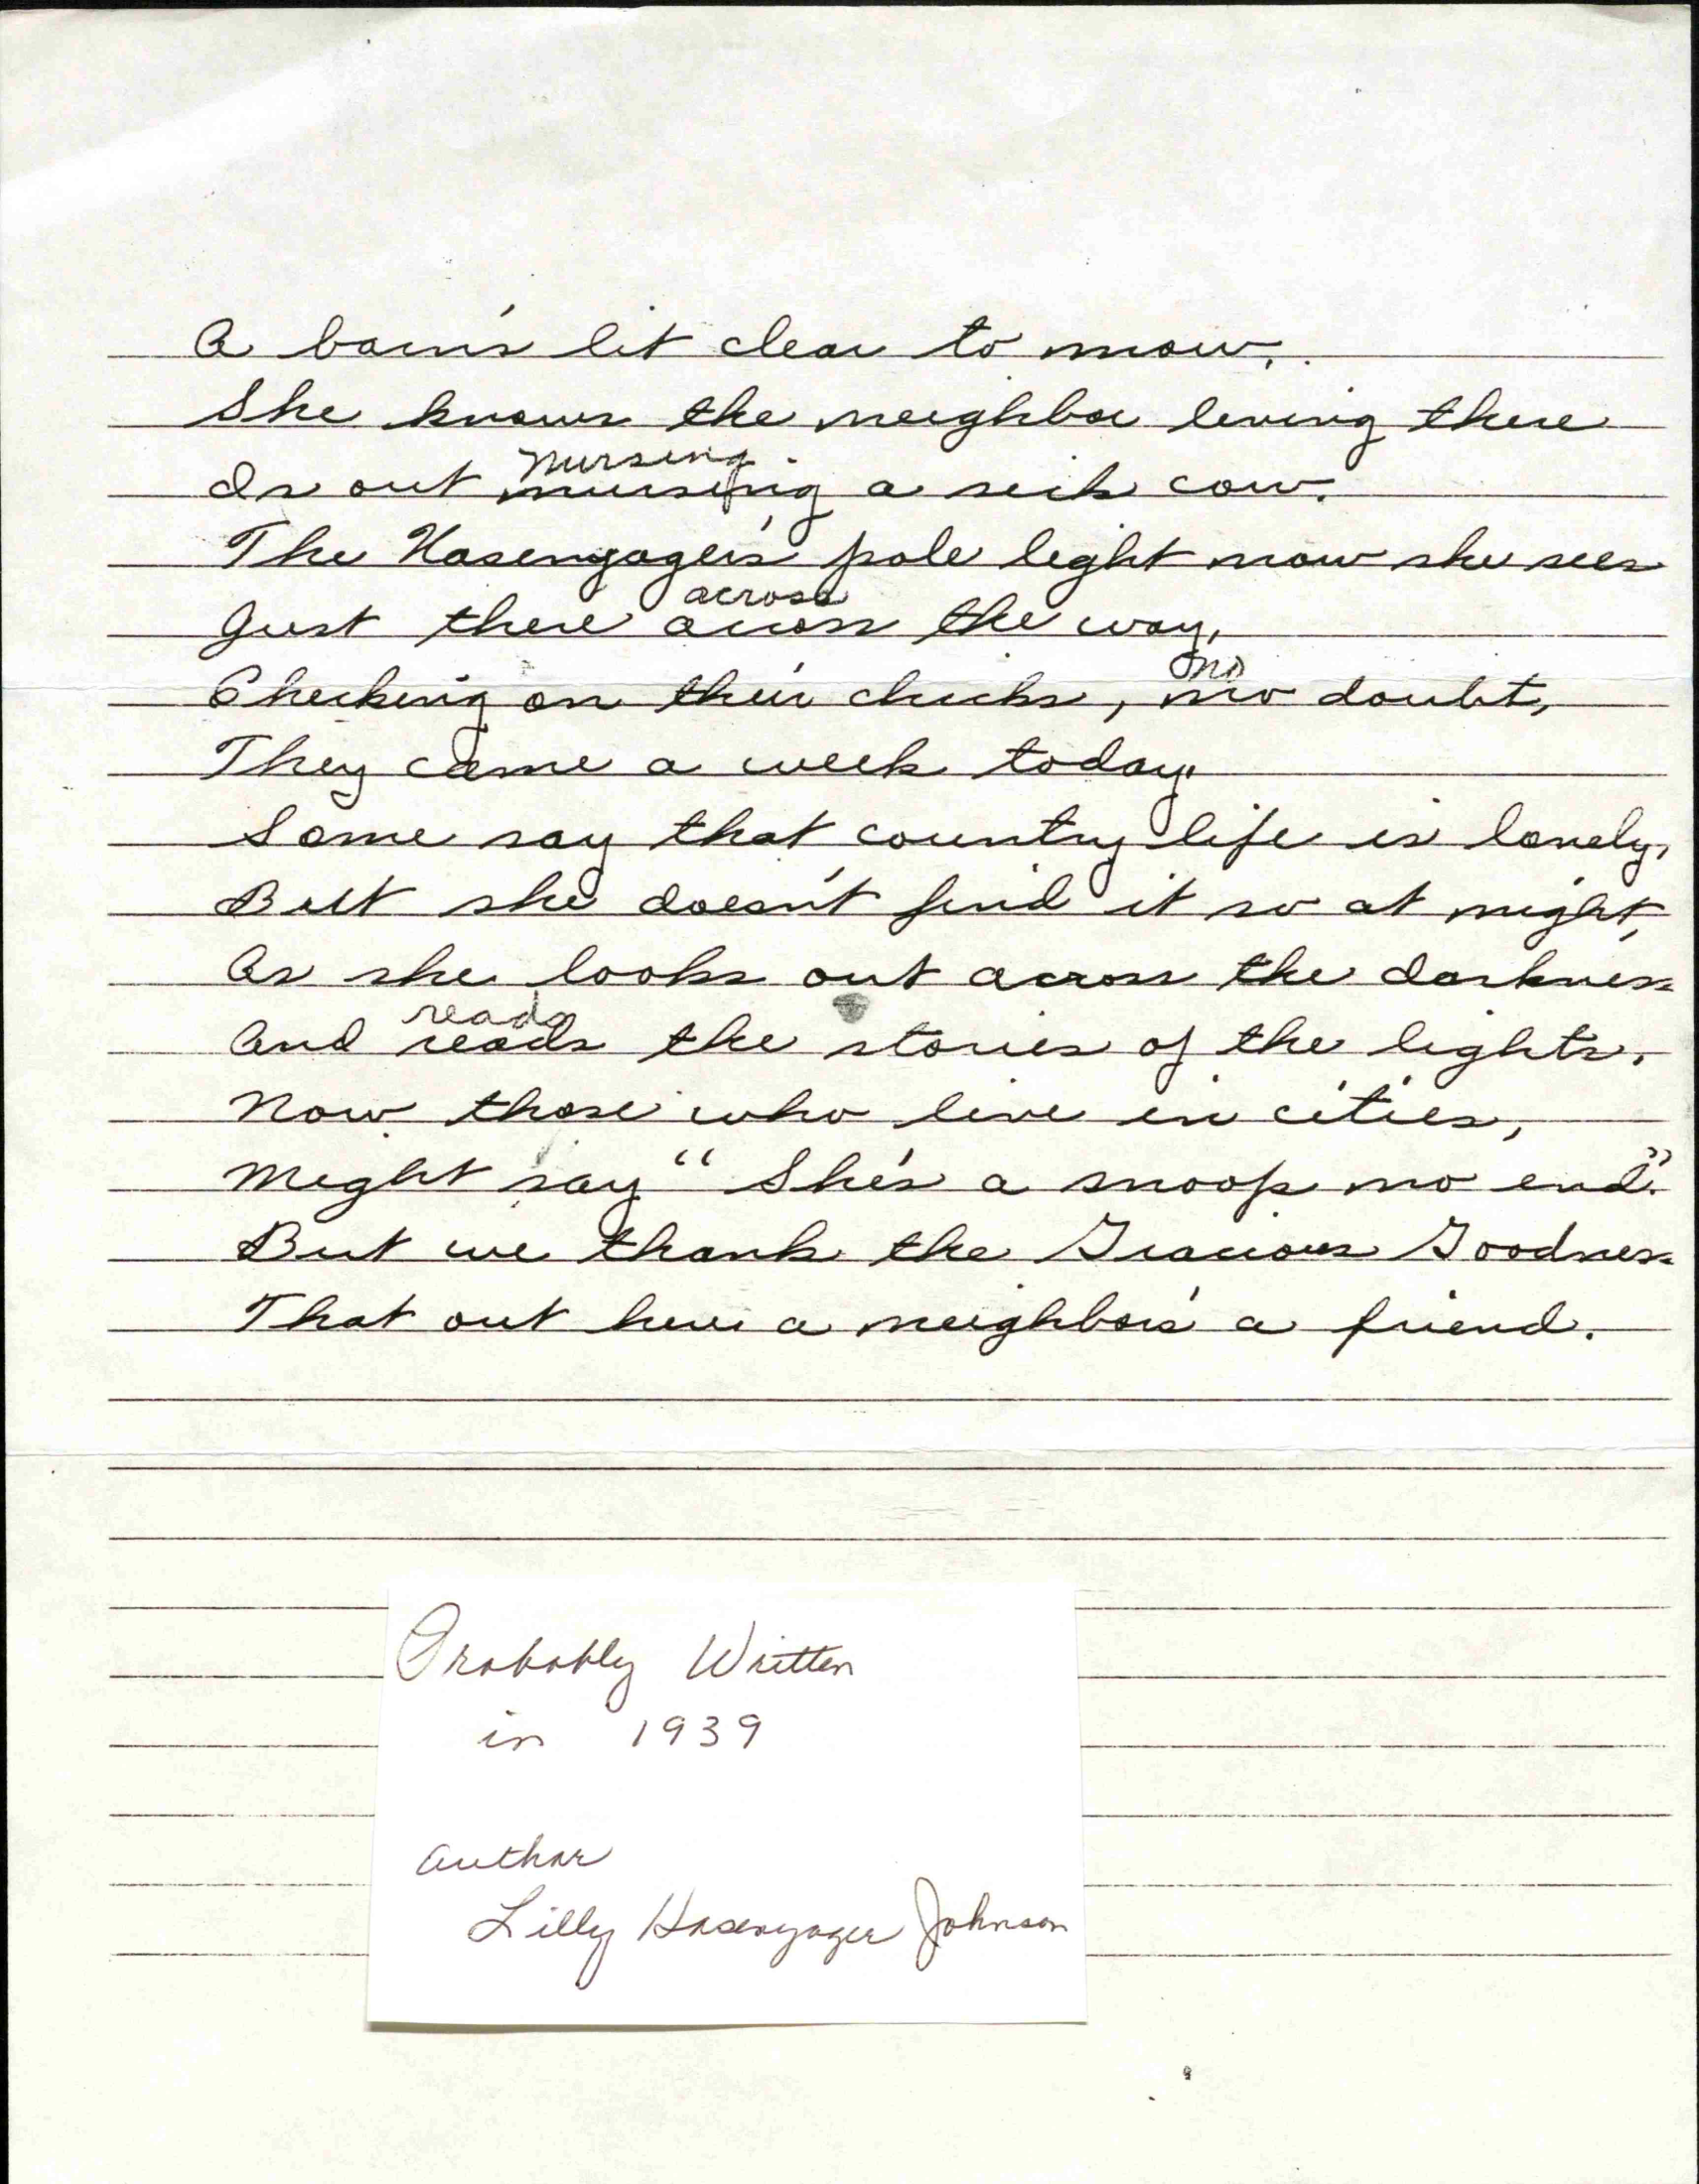 A barn's lit clear to mow,
She knows the neighbor living there
nursing
Is out nursing a sick cow.
The Hasenyager's pole light now she sees
across
Just there across the way,
no
Checking on their chicks, no doubt,
They came a week today.
Some say that country life is lonely,
But she doesn't find it so at night,
As she looks out across the darkness
reads
And reads the stories of the lights.
Now those who live in cities,
Might say "She's a snoop no end."
But we thank the Gracious Goodness
That out here a neighbor's a friend.
Probably Written
in 1939
Author
Lilly Hasenyager Johnson